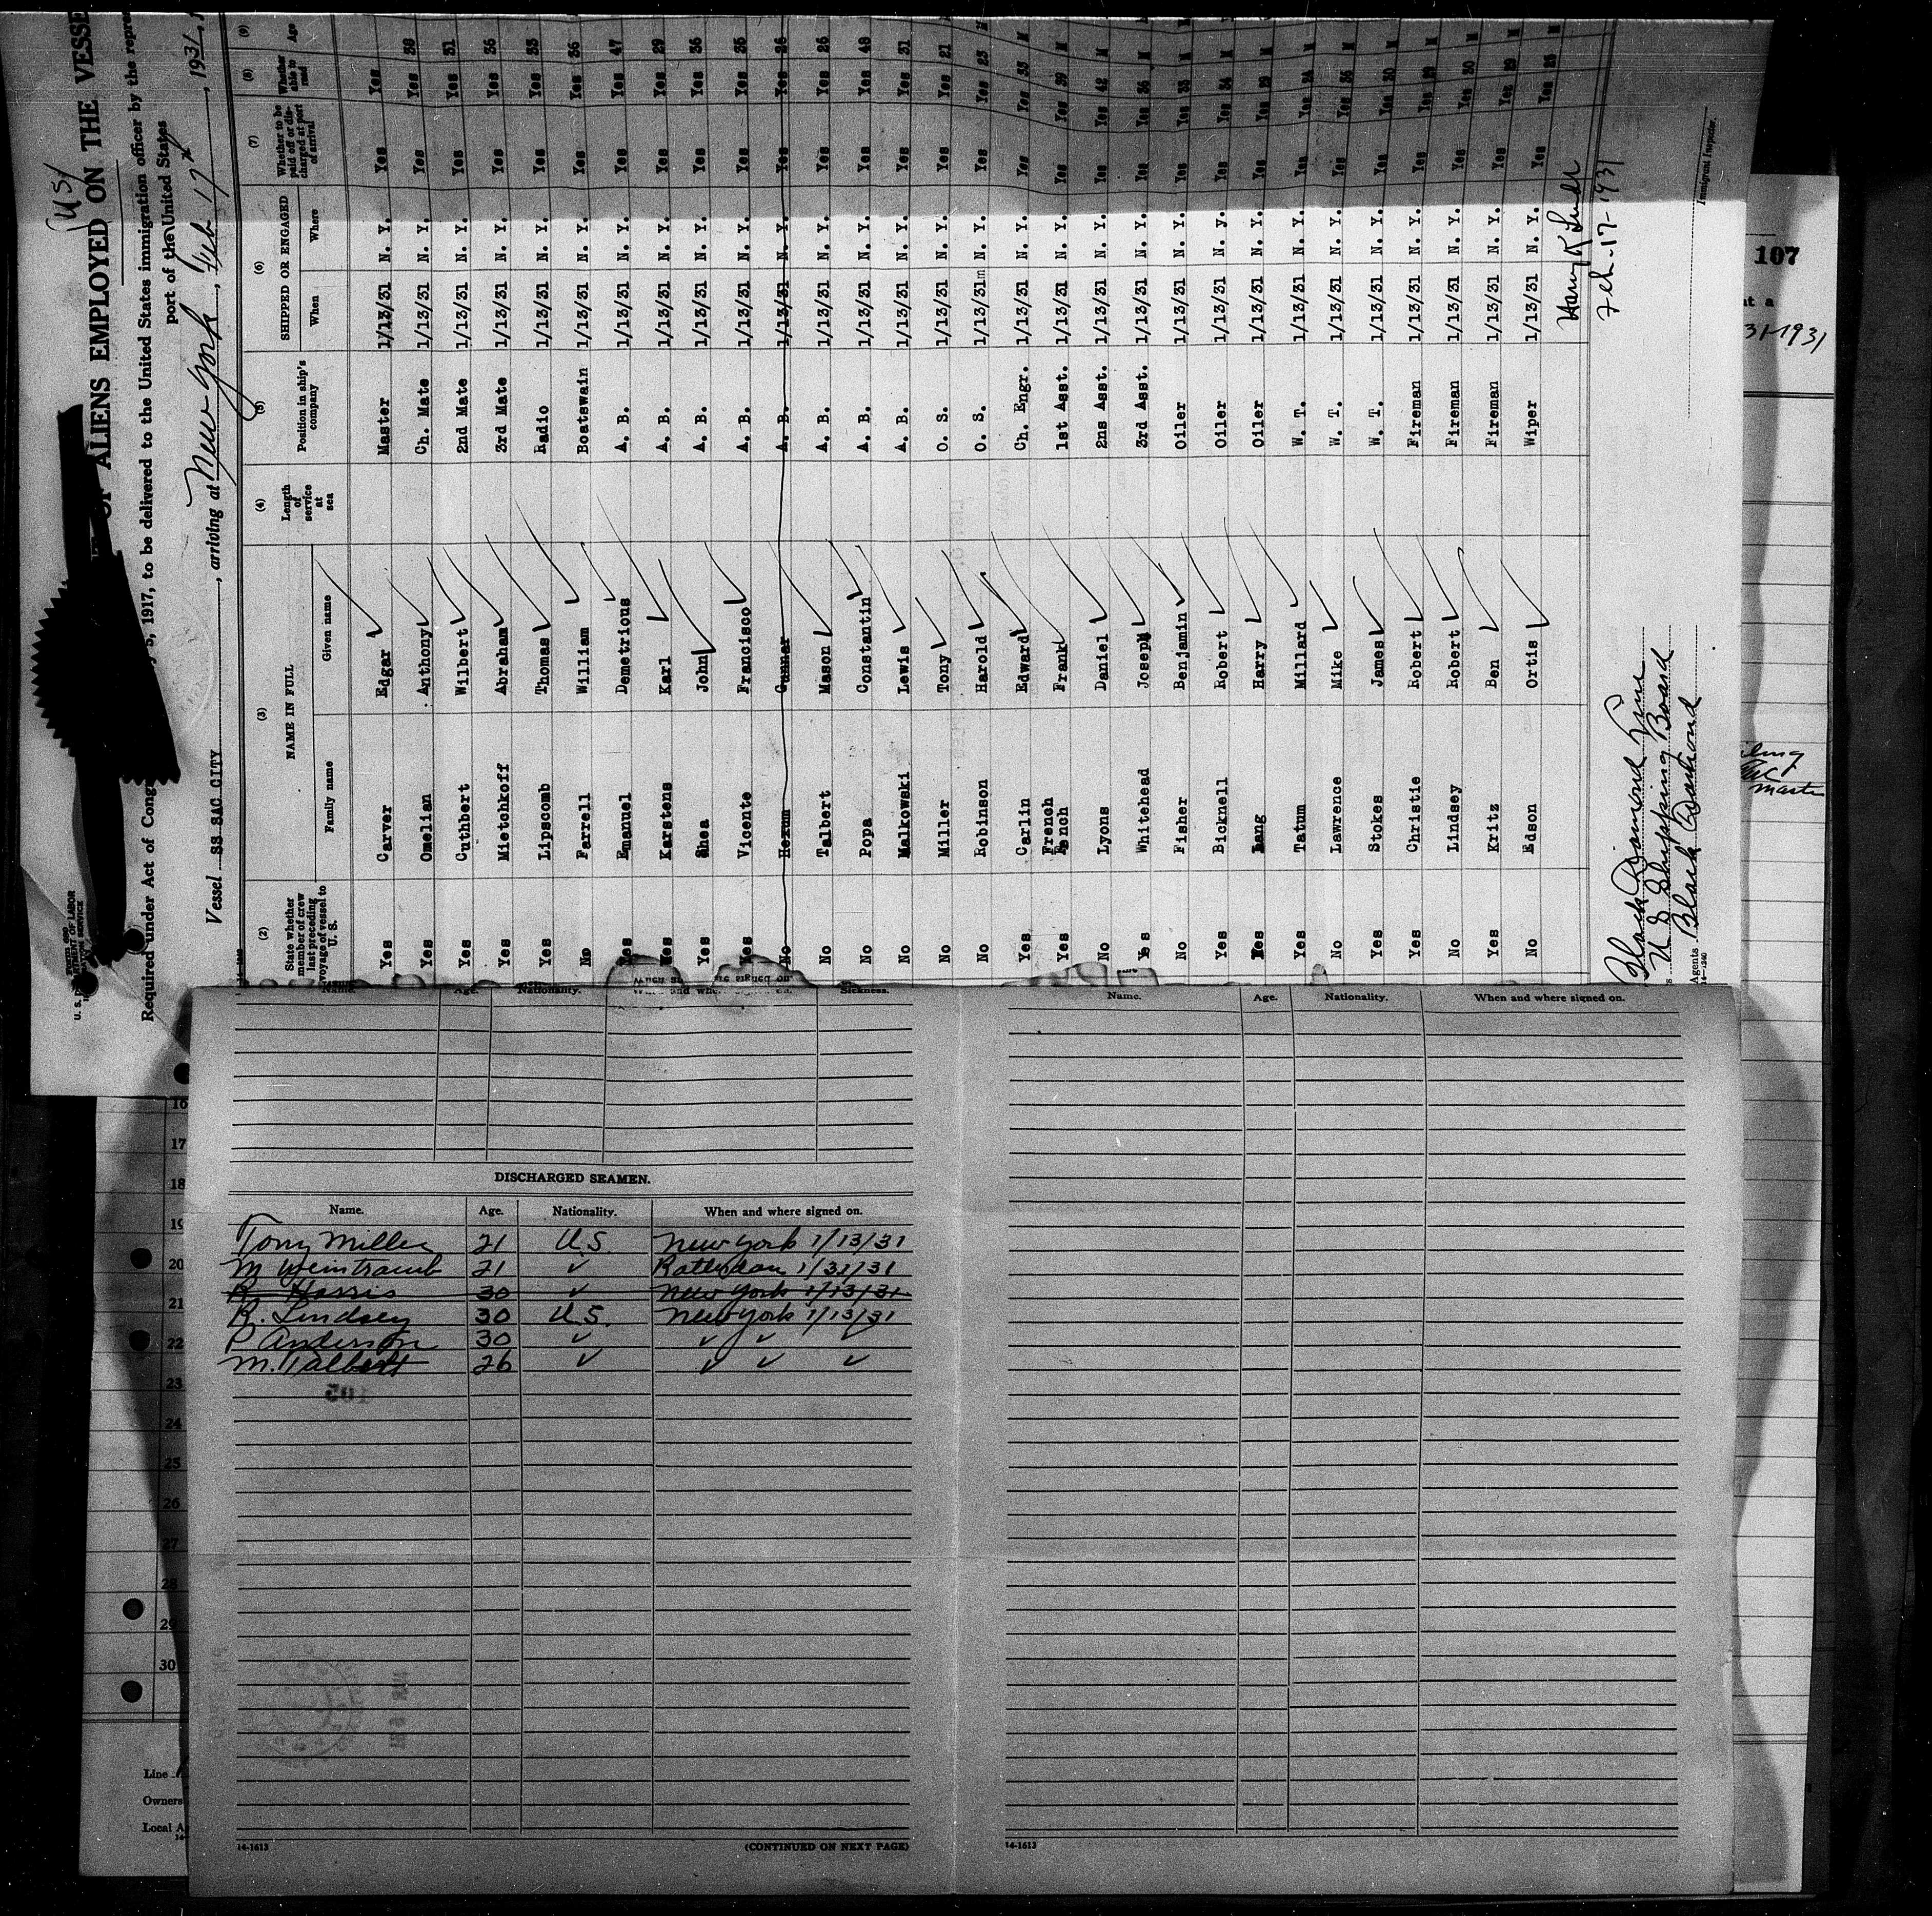 U.S.
ALIENS EMPLOYED ON THE VESSE
Required under Act of Congr 5, 1917, to be delivered to the United States immigration officer by the repre
port of the United States
Vessel SS SAC CITY, arriving at New York, Feb 17th, 1931.
(2) (3) (4) (5) (6) (7) (8) (9)
State whether member of crew last preceding voyage of vessel to U. S. NAME IN FULL Length of service at sea Position in ship's company SHIPPED OR ENGAGED Whether to be paid off or discharged at port of arrival Whether able to read Age
Family name Given name When Where
Yes Carver Edgar Master 1/13/31 N. Y. Yes Yes
Yes Omelian Anthony Ch. Mate 1/13/31 N. Y. Yes Yes 38
Yes Cuthbert Wilbert 2nd Mate 1/13/31 N. Y. Yes Yes 31
Yes Mietchkoff Abraham 3rd Mate 1/13/31 N. Y. Yes Yes 36
Yes Lipscomb Thomas Radio 1/13/31 N. Y. Yes Yes 33
No Farrell William Boatswain 1/13/31 N. Y. Yes Yes 36
Yes Emanuel Demetrious A. B. 1/13/31 N. Y. Yes Yes 47
Yes Karstens Karl A. B. 1/13/31 N. Y. Yes Yes 29
Yes Shea John A. B. 1/13/31 N. Y. Yes Yes 36
Yes Vicente Francisco A. B. 1/13/31 N. Y. Yes Yes 35
No Hexum Gunnar A. B. 1/13/31 N. Y. Yes Yes 26
No Talbert Mason A. B. 1/13/31 N. Y. Yes Yes 26
No Popa Constantin A. B. 1/13/31 N. Y. Yes Yes 48
No Malkowski Lewis A. B. 1/13/31 N. Y. Yes Yes 31
No Miller Tony O. S. 1/13/31 N. Y. Yes Yes 21
No Robinson Harold O. S. 1/13/31m N. Y. Yes Yes 23
Yes Carlin Edward Ch. Engr. 1/13/31 N. Y. Yes Yes 33 M
Yes French Frank 1st Asst. 1/13/31 N. Y. Yes Yes 39 M
No Lyons Daniel 2ns Asst. 1/13/31 N. Y. Yes Yes 42 M
Yes Whitehead Joseph 3rd Asst. 1/13/31 N. Y. Yes Yes 36 M
No Fisher Benjamin Oiler 1/13/31 N. Y. Yes Yes 33 M
Yes Bicknell Robert Oiler 1/13/31 N. y. Yes Yes 34 M
Yes Lang Harry Oiler 1/13/31 N. Y. Yes Yes 29 M
Yes Tatum Millard W. T. 1/13/31 N. Y. Yes Yes 24 M
No Lawrence Mike W. T. 1/13/31 N. Y. Yes Yes 36 M
Yes Stokes James W. T. 1/13/31 N. Y. Yes Yes 30 M
Yes Christie Robert Fireman 1/13/31 N. Y. Yes Yes 29 M
No Lindsey Robert Fireman 1/13/31 N. Y. Yes Yes 30 M
Yes Kritz Ben Fireman 1/13/31 N. Y. Yes Yes 29 M
No Edson Ortis Wiper 1/13/31 N. Y. Yes Yes 25 M
Feb-17-1931
Immigrant Inspector.
Black Diamond Line
U S Shipping Board
Agents Black Diamond
14-1240
107
at a
31-1931
Name. Age. Nationality. When and where signed on. Sickness.
Name. Age. Nationality. When and where signed on.
DISCHARGED SEAMEN.
Name. Age. Nationality. When and where signed on.
Tony Miller 21 U.S. New York 1/13/31
M Weintraub 21 ✓ Rotterdam 1/31/31
R. Harris 30 ✓ New York 1/13/31
R. Lindsey 30 U.S. New York 1/13/31
P Anderson 30 ✓ ✓ ✓ ✓
M. Talbert 26 ✓ ✓ ✓ ✓
105
16
17
18
19
20
21
22
23
24
25
26
27
28
29
30
Line
Owners
Local A
14-1613 (CONTINUED ON NEXT PAGE)
14-1613